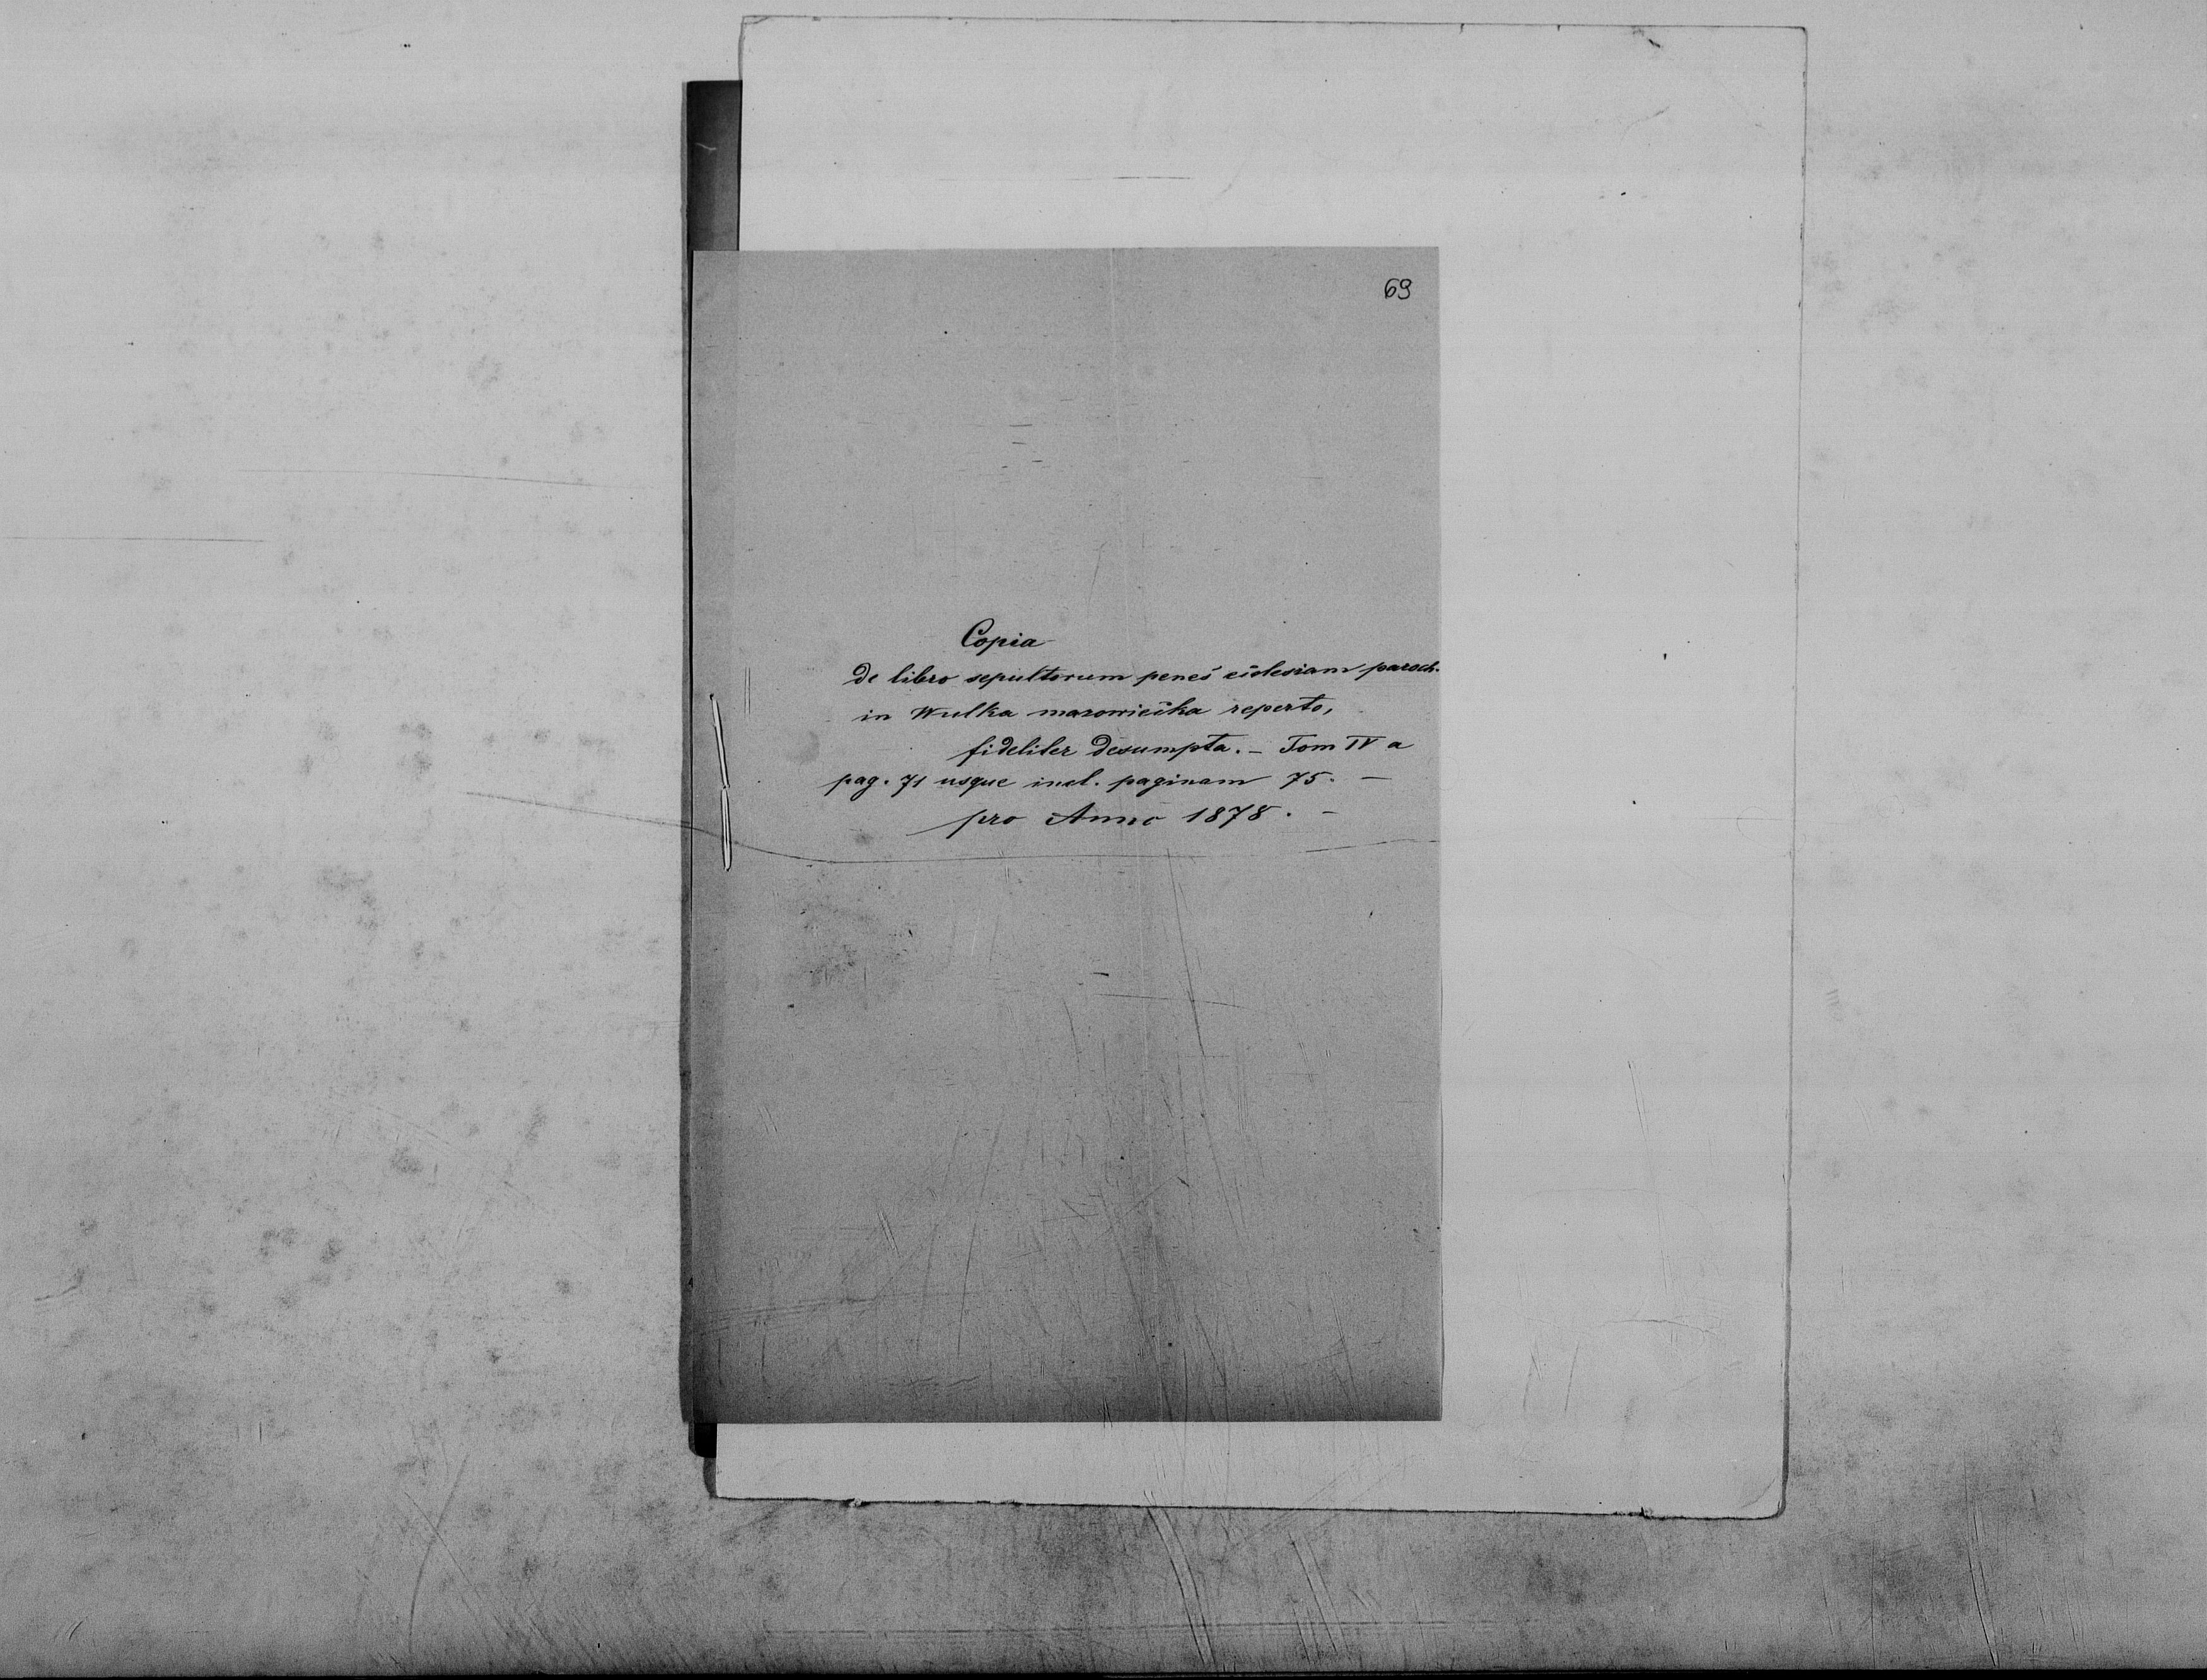 69
Copia
de libro sepultorum penes ecclesiam paroch.
in Wulka mazowiecka reperto,
fideliter desumpta. – Tom IV a
pag. 71 usque incl. paginam 75. –
pro Anno 1878. –